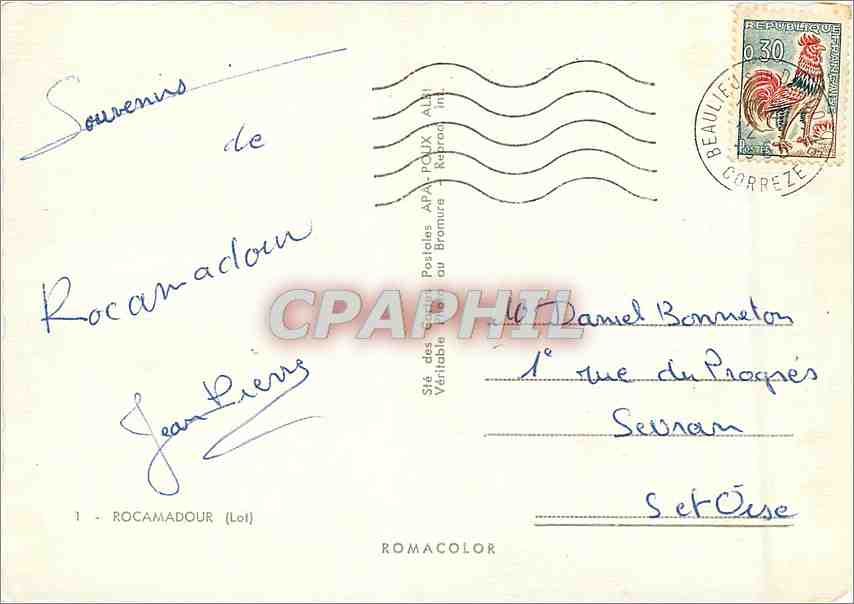 Souvenirs
de
Rocamadour
Jean Pierre
1 - ROCAMADOUR (Lot)
ROMACOLOR
Sté des Cartes Postales APA-POUX ALBI
Véritable Photo au Bromure - Reprod. int.
CPAPHIL
REPUBLIQUE FRANÇAISE
0,30
POSTES
BEAULIEU
CORREZE
Mr Daniel Bonneton
1° rue du Progrés
Sevran
S et Oise